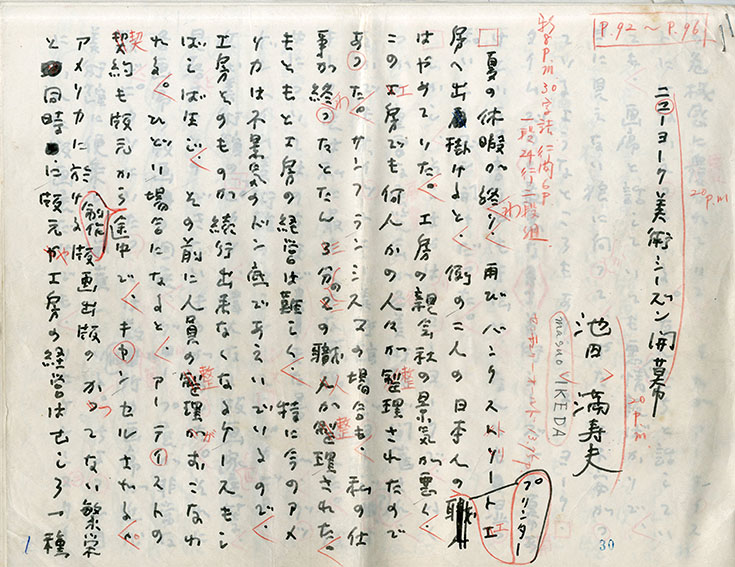 P.92 〜 P.96
ニューヨーク美術シーズン開幕
20 p.m
池田満寿夫
masuo IKEDA
20 p.m
30字詰 行間6P
一段24行 二段組
夏の休暇が終り、再びバンクストリート工
房へ出掛けると、例の二人の日本人の職人
プリンター
はやめていた。工房の親会社の景気が悪く、
この工房でも何人かの人々が整理されたので
あった。サンフランシスコの場合も、私の仕
事が終ったとたん3分の2の職人が整理された。
もともと工房の経営は難しく、特に今のアメ
リカは不景気のドン底であえいでいるので、
工房そのものが続行出来なくなるケースもし
ばしばだし、その前に人員の整理がおこなわ
れる。ひどい場合になると、アーティストの
契約も版元から途中で、キャンセルされる。
アメリカに於ける版画出版のかつてない繁栄
と同時に版元や工房の経営はむしろ一種
1
30